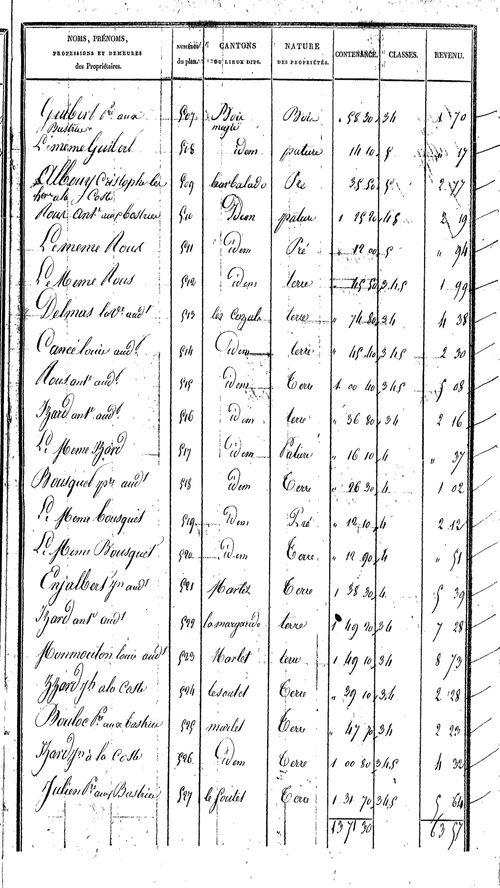 NOMS, PRÉNOMS, PROFESSIONS ET DEMEURES des Propriétaires. NUMÉROS du plan. CANTONS OU LIEUX DITS. NATURE DES PROPRIÉTÉS. CONTENANCE. CLASSES. REVENU.
Guibert Pre aux Bastries 507 Bois Bois 58 30 34 1 70
Le meme Guibert 508 idem pature 14 10 5 " 17
Albouy Cristophe a la Coste 509 35 50 5 2 77
Roux Ant. aux bastries 510 Idem pature 1 25 20 45 2 19
Le meme Roux 511 idem Pré 12 00 5 " 94
Le Meme Roux 512 idem terre 45 50 345 1 99
Delmas audt 513 terre " 74 80 34 4 38
Cancé louis audt 514 idem terre " 45 40 345 2 30
Roux ant audt 515 idem Terre 1 00 40 345 5 08
Izard ant audt 516 idem terre " 36 80 34 2 16
Le Meme Izard 517 idem Pature " 16 10 4 " 37
Bousquet audt 518 idem Terre " 26 30 4 1 02
Le Meme bousquet 519 idem Pré " 12 10 4 2 12
Le Meme Bousquet 520 idem Terre " 12 90 4 " 51
Enjalbert audt 521 Martés Terre 1 38 30 4 5 39
Izard ant audt 522 la margaride terre 1 49 20 34 7 28
Monmouton louis audt 523 Marlet terre 1 49 10 34 8 73
Izard Jh a la Coste 524 lesoulet Terre " 39 10 34 2 28
Bouloc Pre aux bastries 525 marlet Terre " 47 70 34 2 23
Izard à la Coste 526 idem Terre 1 00 80 345 4 32
Julien Pre aux Bastries 527 le Soulet Terre 1 31 70 345 5 64
13 71 30 63 57